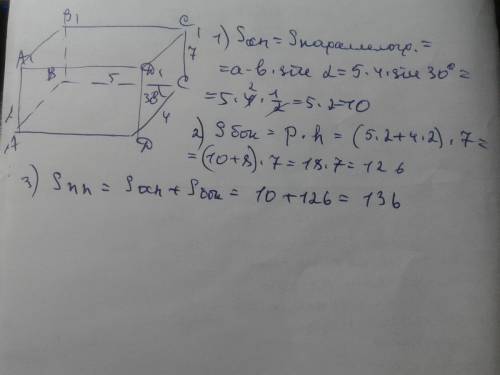 B₁
C₁
A₁
D₁
7
B
5
C
30°
4
A
D
1) Sосн = Sпараллелогр. =
= a·b·sin α = 5·4·sin 30° =
= 5·4·1/2 = 5·2=10
2
2) Sбок = P·h = (5·2+4·2)·7 =
= (10+8)·7 = 18·7 = 126
3) Sпп = Sосн + Sбок = 10+126 = 136